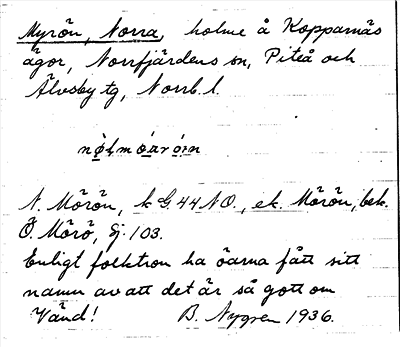 Myrön, Norra, holme å Kopparnäs
ägor, Norrfjärdens sn, Piteå och
Älvsby tg, Norrb. l.
N. Mörön, k G. 44 N O., ek. Mörön, bek.
Ö. Mörö, Sj. 103.
Enligt folktron ha öarna fått sitt
namn av att det är så gott om
Vänd! B. Nygren 1936.